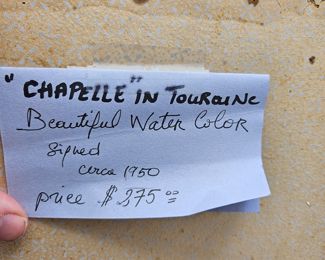 "CHAPELLE" IN TOURAINE
Beautiful Water Color
signed
circa 1950
price $375.00